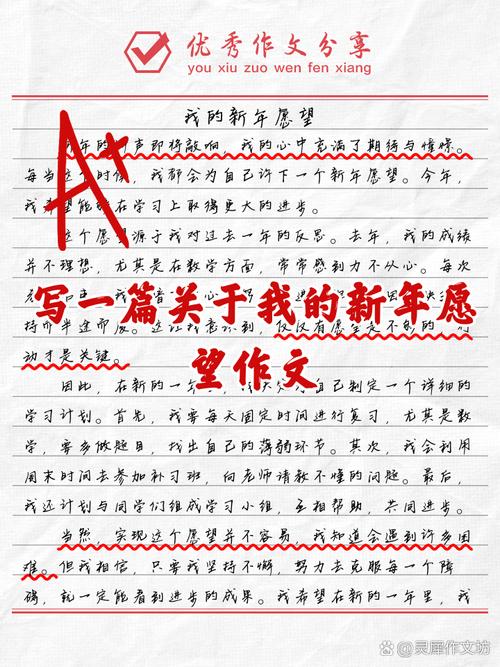 优秀作文分享
you xiu zuo wen fen xiang
我的新年愿望
A+
年的 声即将敲响，我的心中充满了期待与憧憬。
每当这个时候，我都会为自己许下一个新年愿望。今年，
我希望能 在学习上取得更大的进步。
这个愿 源于我对过去一年的反思。去年，我的成绩
并不理想，尤其是在数学方面，常常感到力不从心。每次
写一篇关于我的新年愿
望作文
持而半途而废。
动才是关键。
因此，在新的一年 自己制定一个详细的
学习计划。首先，我要每天固定时间进行复习，尤其是数
学，要多做题目，找出自己的薄弱环节。其次，我会利用
周末时间去参加补习班，向老师请教不懂的问题。最后，
我还计划与同学们组成学习小组，互相帮助，共同进步。
当然，实现这个愿望并不容易，我知道会遇到许多困
难。但我相信，只要我坚持不懈，努力去克服每一个障
碍，就一定能看到进步的成果。我希望在新的一年里，我
灵犀作文坊